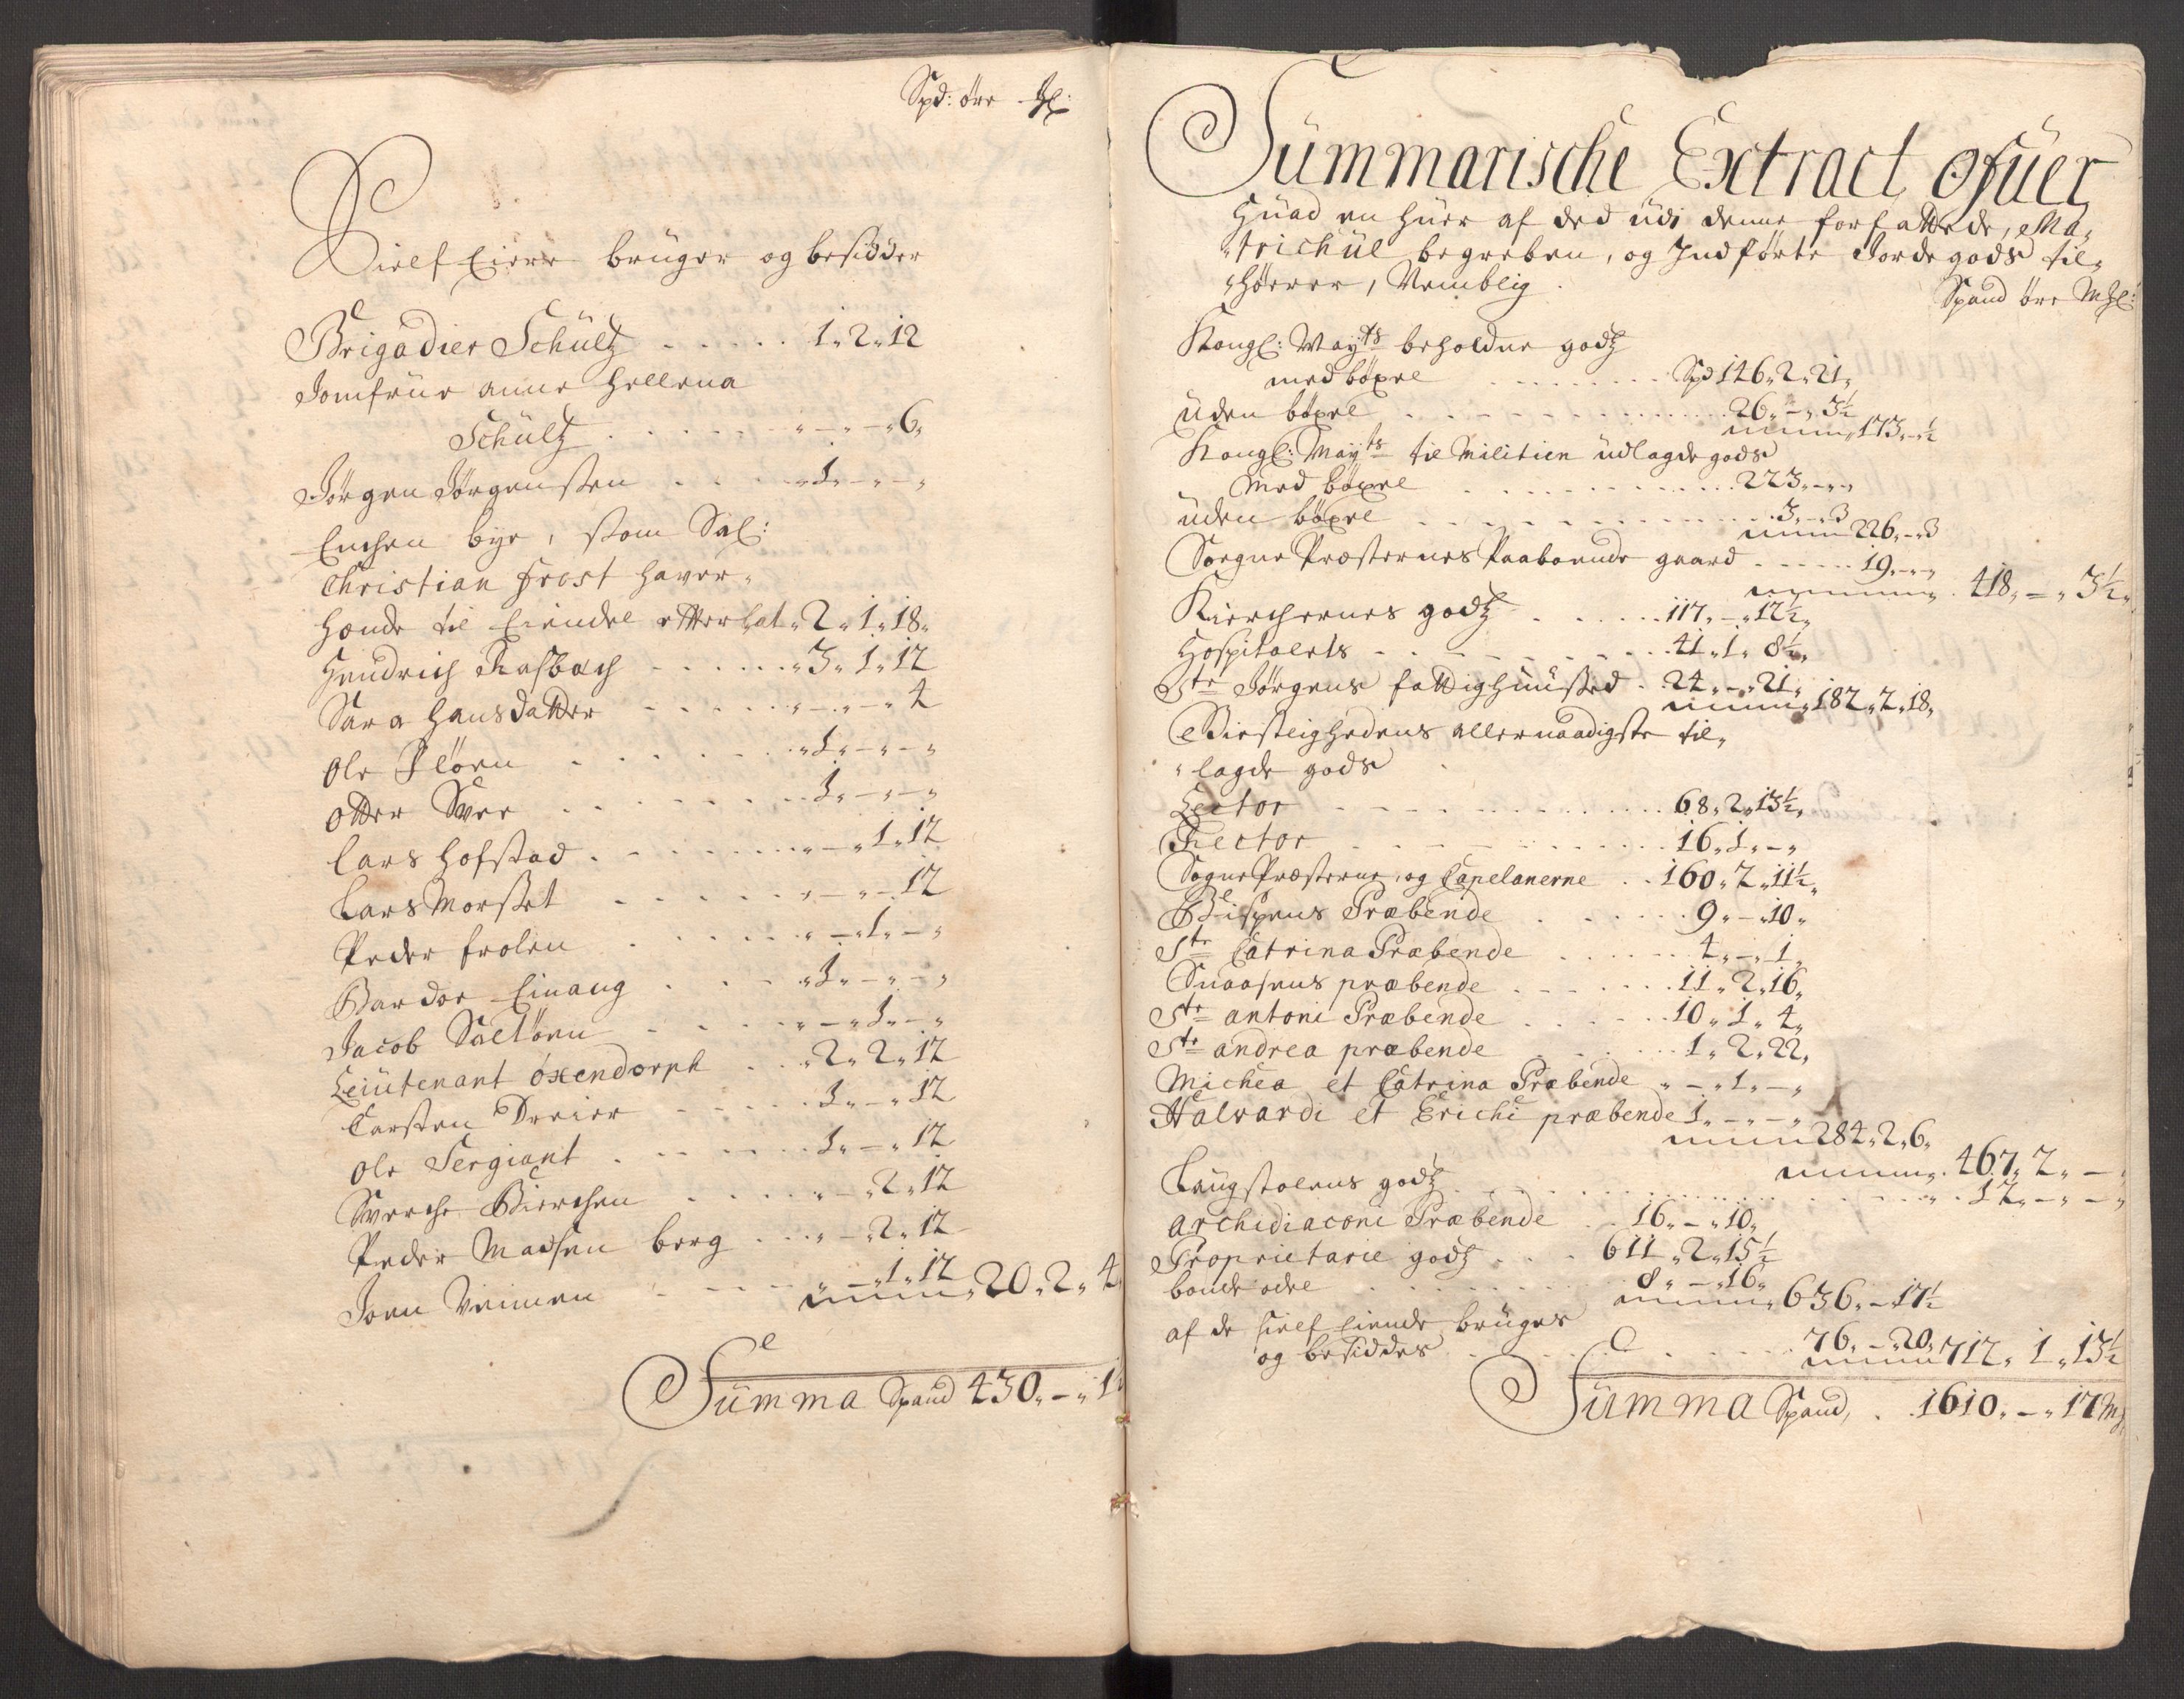 Spd: öre Ml:
Sielf Eiere brüger og besidder
Brigadier Schültz . . . . . 1 " 2 " 12
Jomfrue anne Hellena
Schültz . . . . . " — " — " 6 "
Jörgen Jörgensen . . . . " 1 " — " — "
Enchen bye, som Sal:
Christian Frost haver
hende til Eiendel efterlat " 2 " 1 " 18 "
Hendrich Rasbach . . . . . " 3 " 1 " 12
Sara hansdatter . . . . . " — " — " 4
Ole Flöen . . . . . " 1 " — " — "
Otter Svee . . . . . 1 " — " — "
Lars Hofstad . . . . . " — " 1 " 12
Lars Morset . . . . . " — " — " 12
Peder frolen . . . . . " — " 1 " — "
Bardoe Einang . . . . " 1 " — " — "
Jacob Saltöen . . . . " — " 1 " — "
Leiutenant öxendorph . . " 2 " 2 " 12
Carsten Dreier . . . . 1 " — " 12
Ole Sergiant . . . . . 1 " — " 12
Sverche Bierchen . . . . " — " 2 " 12
Peder Madsen berg . . . " — " 2 " 12
Joen Veimen . . . . " — " 1 " 12
20 " 2 " 4
Summa Spand 430 " — " 1
Summarische Extract ofuer
Huad en huer af ded udi denne forfattede, Ma-
trichül begreben, og Indförte Jordegods til-
hörer, Nemblig.
Spand öre Ml:
Kongl: Mayts beholdne godtz
med böxel . . . . . Spd 146 " 2 " 21 "
uden böxel . . . . . 26 " — " 3½
173 " — " ½
Kongl: Mayts til Militien udlagde gods
Med böxel . . . . . 223 " — " — "
uden böxel . . . . . 3 " — " 3
226 " — " 3
Sogne Præsternes Paaboende gaard . . . . . 19 " — " — "
418 " — " 3½ "
Kierchernes godtz . . . . . 117 " — " 12½ "
Hospitalets . . . . . 41 " 1 " 8½ "
Ste Jörgens fattighuused . 24 " — " 21 "
182 " 2 " 18 "
Giestlighedens allernaadigste til-
lagde gods
Lector . . . . . 68 " 2 " 13½ "
Rector . . . . . 16 " 1 " — "
Sogne Præsterne, og Capelanerne . . 160 " 2 " 11½ "
Bispens Præbende . . . . . 9 " — " 10 "
Ste Catrina Præbende . . . . . 4 " — " 1 "
Snaasens præbende . . . . . 11 " 2 " 16 "
Ste antoni Præbende . . . . . 10 " 1 " 4 "
Ste andrea præbende . . . . . 1 " 2 " 22 "
Michea et Catrina Præbende " — " 1 " — "
Halvardi et Erichi præbende 1 " — " — "
284 " 2 " 6 "
467 " 2 " —
Laugstolens godtz . . . . . 12 " — " — "
Archidiaconi Præbende . . 16 " — " 10 "
Proprietarie godtz . . . 611 " 2 " 15½
bonde odel . . . . . 8 " — " 16 "
636 " — " 17½
af de sielf Eiende brüges
og besiddes . . . . . 76 " — " 20 "
712 " 1 " 13½
Summa Spand, . 1610 " — " 17 Ml